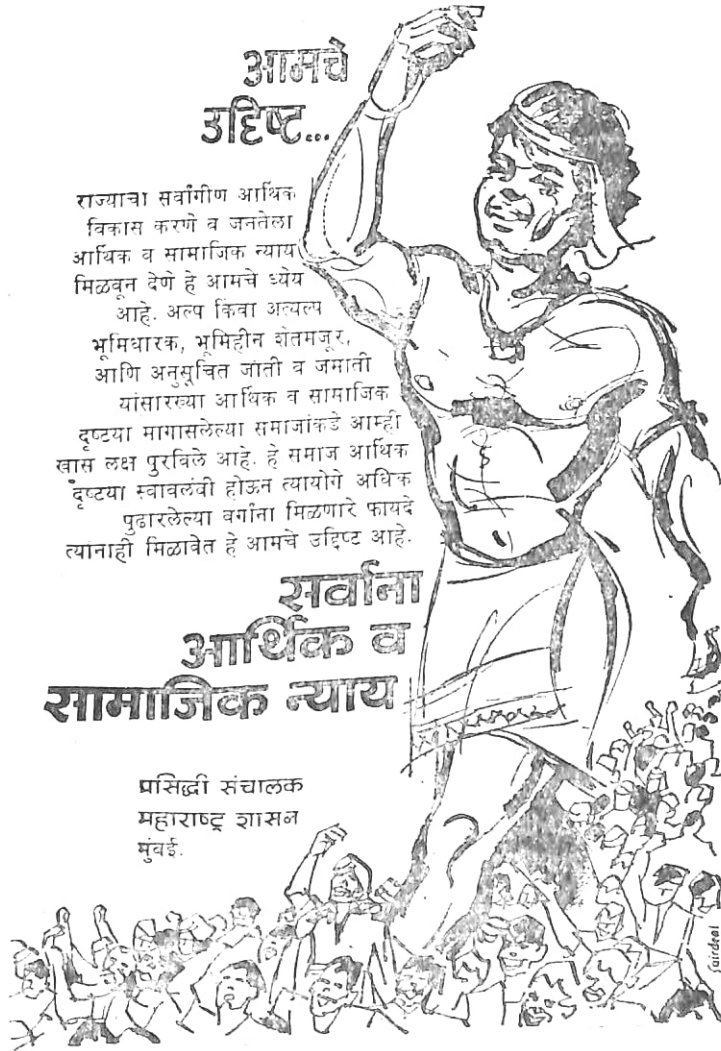 आमचे
उद्दिष्ट...
राज्याचा सर्वांगीण आर्थिक
विकास करणे व जनतेला
आर्थिक व सामाजिक न्याय
मिळवून देणे हे आमचे ध्येय
आहे. अल्प किंवा अत्यल्प
भूमिधारक, भूमिहीन शेतमजूर,
आणि अनुसूचित जाती व जमाती
यांसारख्या आर्थिक व सामाजिक
दृष्टया मागासलेल्या समाजांकडे आम्ही
खास लक्ष पुरविले आहे. हे समाज आर्थिक
दृष्टया स्वावलंबी होऊन त्यायोगे अधिक
पुढारलेल्या वर्गांना मिळणारे फायदे
त्यांनाही मिळावेत हे आमचे उद्दिष्ट आहे.
सर्वांना
आर्थिक व
सामाजिक न्याय
प्रसिद्धी संचालक
महाराष्ट्र शासन
मुंबई.
Fairdeal